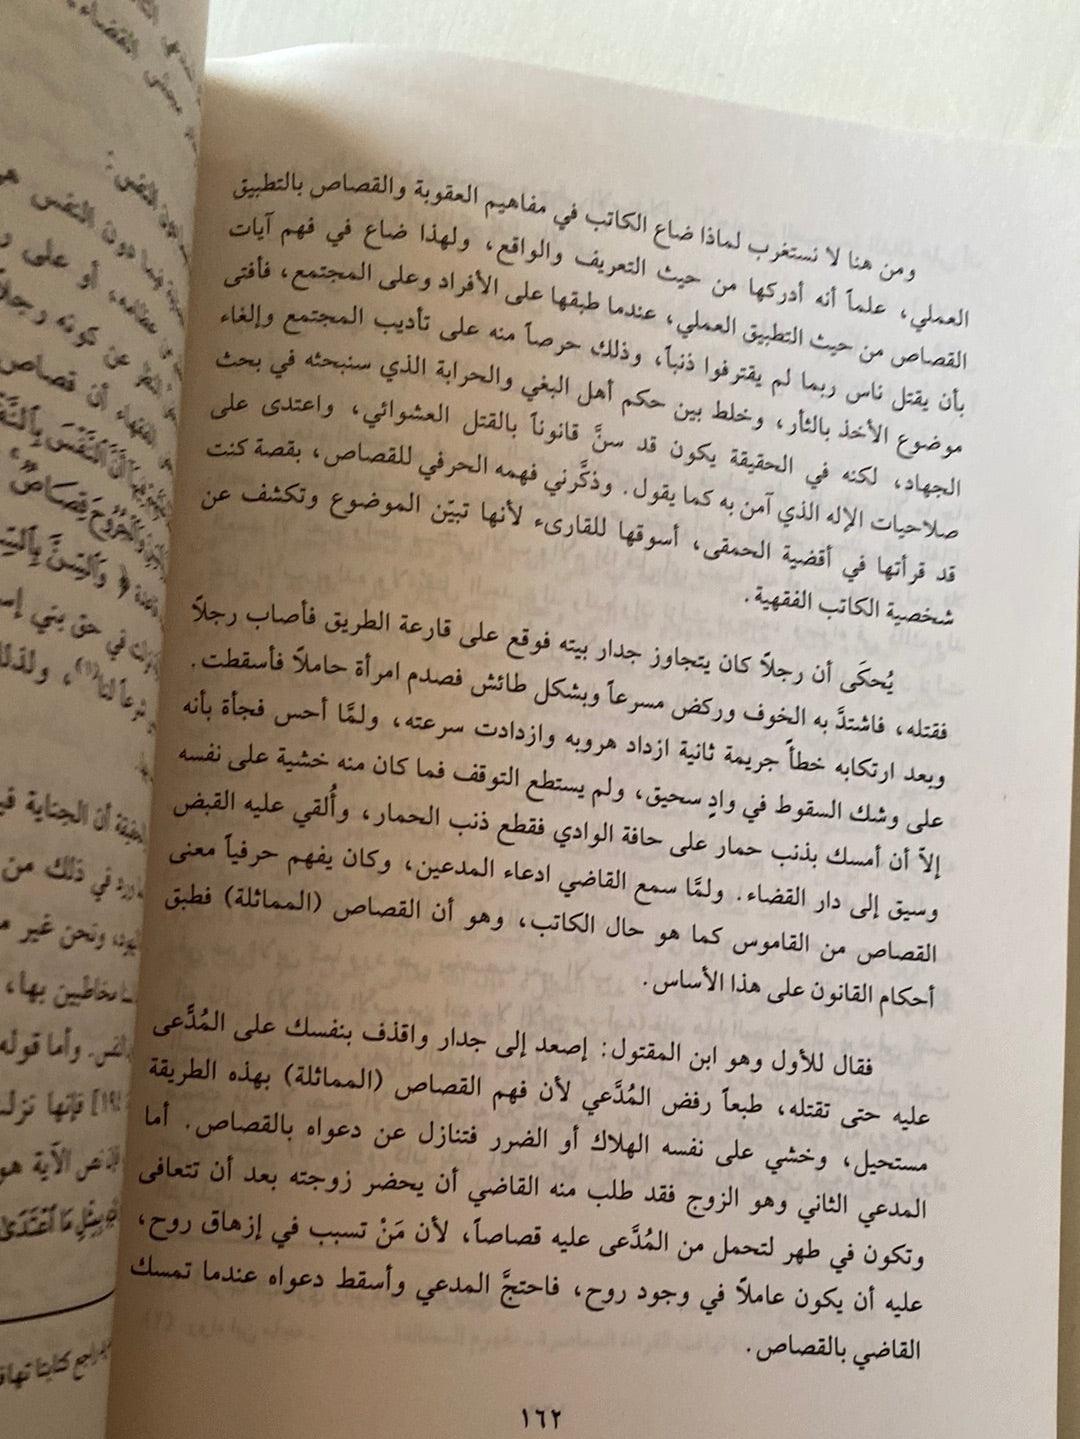 ومن هنا لا نستغرب لماذا ضاع الكاتب في مفاهيم العقوبة والقصاص بالتطبيق
العملي، علماً أنه أدركها من حيث التعريف والواقع، ولهذا ضاع في فهم آيات
القصاص من حيث التطبيق العملي، عندما طبقها على الأفراد وعلى المجتمع، فأفتى
بأن يقتل ناس ربما لم يقترفوا ذنباً، وذلك حرصاً منه على تأديب المجتمع وإلغاء
موضوع الأخذ بالثأر، وخلط بين حكم أهل البغي والحرابة الذي سنبحثه في بحث
الجهاد، لكنه في الحقيقة يكون قد سنَّ قانوناً بالقتل العشوائي، واعتدى على
صلاحيات الإله الذي آمن به كما يقول. وذكَّرني فهمه الحرفي للقصاص، بقصة كنت
قد قرأتها في أقضية الحمقى، أسوقها للقارىء لأنها تبيّن الموضوع وتكشف عن
شخصية الكاتب الفقهية.
يُحكَى أن رجلاً كان يتجاوز جدار بيته فوقع على قارعة الطريق فأصاب رجلاً
فقتله، فاشتدَّ به الخوف وركض مسرعاً وبشكل طائش فصدم امرأة حاملاً فأسقطت.
وبعد ارتكابه خطأً جريمة ثانية ازداد هروبه وازدادت سرعته، ولمَّا أحس فجأة بأنه
على وشك السقوط في وادٍ سحيق، ولم يستطع التوقف فما كان منه خشية على نفسه
إلاّ أن أمسك بذنب حمار على حافة الوادي فقطع ذنب الحمار، وأُلقي عليه القبض
وسيق إلى دار القضاء. ولمَّا سمع القاضي ادعاء المدعين، وكان يفهم حرفياً معنى
القصاص من القاموس كما هو حال الكاتب، وهو أن القصاص (المماثلة) فطبق
أحكام القانون على هذا الأساس.
فقال للأول وهو ابن المقتول: إصعد إلى جدار واقذف بنفسك على المُدَّعى
عليه حتى تقتله، طبعاً رفض المُدَّعي لأن فهم القصاص (المماثلة) بهذه الطريقة
مستحيل، وخشي على نفسه الهلاك أو الضرر فتنازل عن دعواه بالقصاص. أما
المدعي الثاني وهو الزوج فقد طلب منه القاضي أن يحضر زوجته بعد أن تتعافى
وتكون في طهر لتحمل من المُدَّعى عليه قصاصاً، لأن مَنْ تسبب في إزهاق روح،
عليه أن يكون عاملاً في وجود روح، فاحتجَّ المدعي وأسقط دعواه عندما تمسك
القاضي بالقصاص.
١٦٢